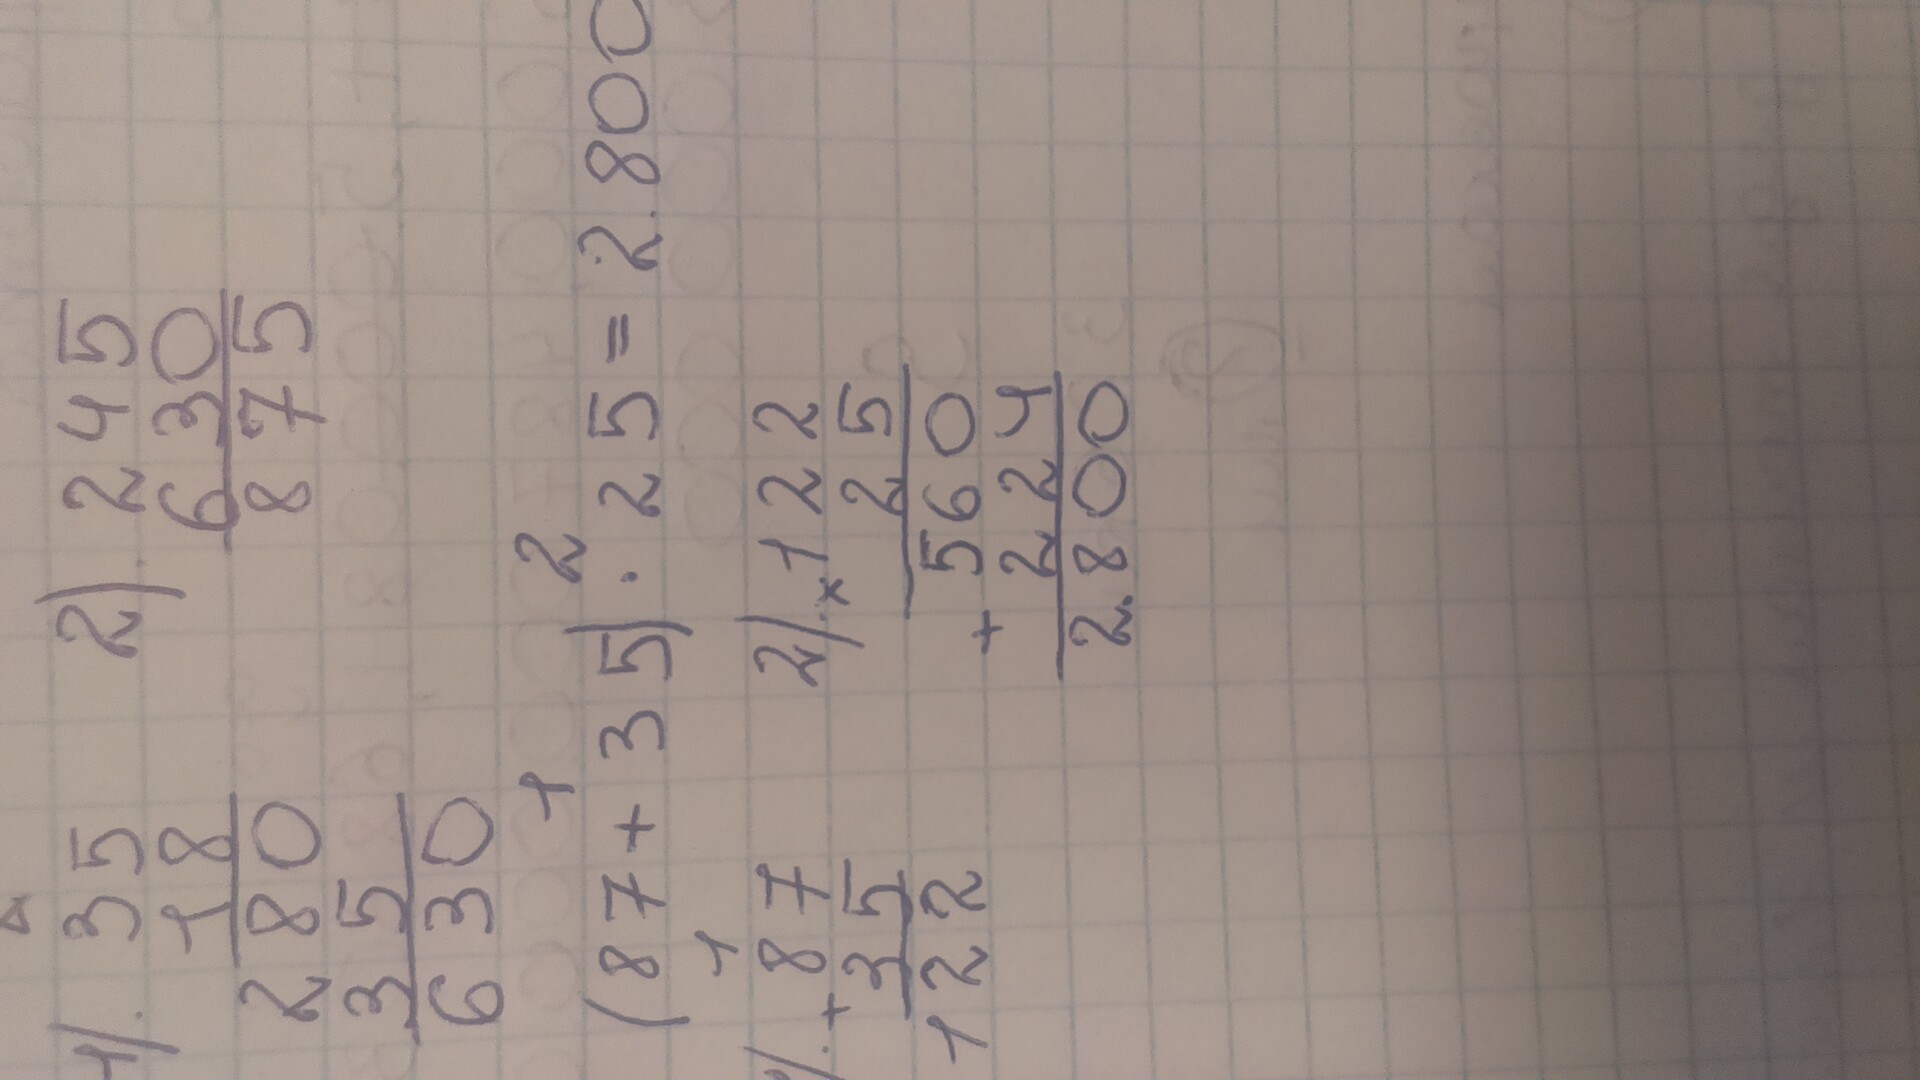 1). 35 2). 245
18 630
280 875
35
630
1 2
(87+35) · 25 = 2.800
1
). + 87 2). x 122
35 25
122 560
+ 224
2.800